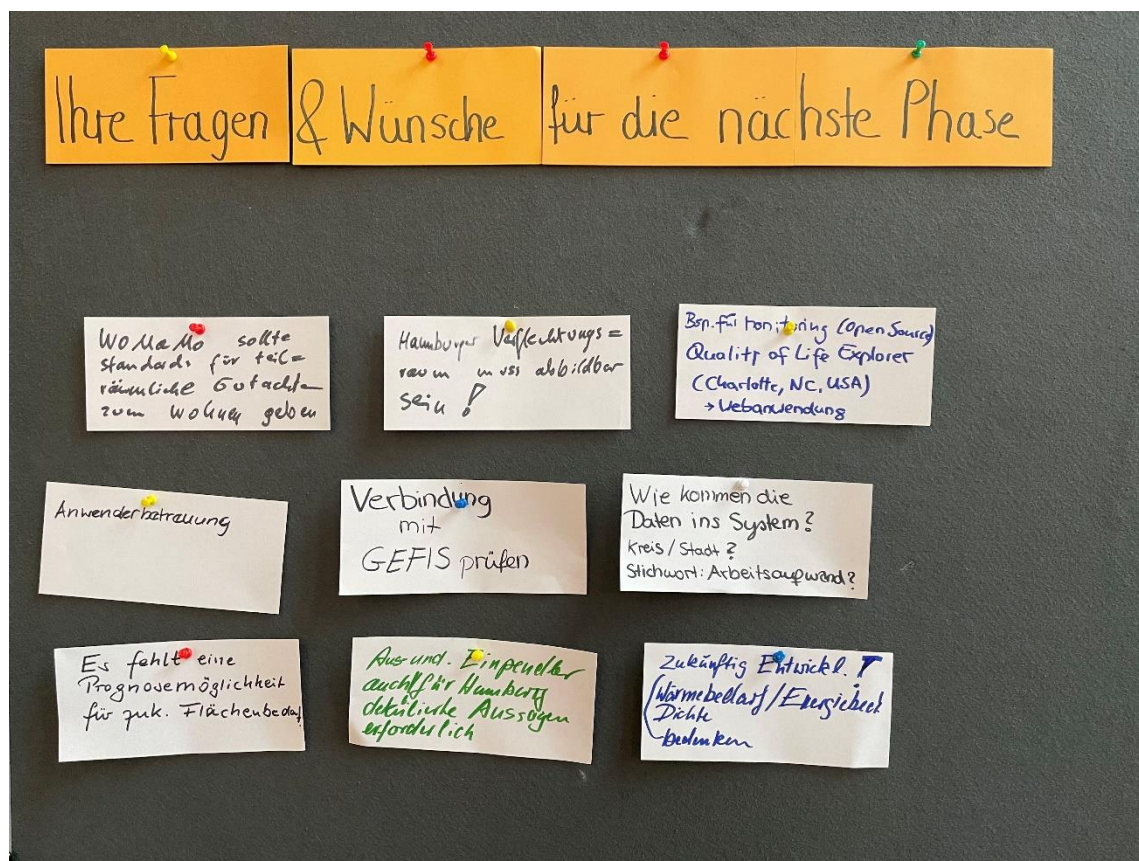 Ihre Fragen & Wünsche für die nächste Phase
WoMaMo sollte
standards für teil=
räumliche Gutachten
zum Wohnen geben
Hamburger Verflechtungs=
raum muss abbildbar
sein!
Bsp. für Monitoring (Open Source)
Quality of Life Explorer
(Charlotte, NC, USA)
→ Webanwendung
Anwenderbetreuung
Verbindung
mit
GEFIS prüfen
Wie kommen die
Daten ins System?
Kreis/Stadt?
Stichwort: Arbeitsaufwand?
Es fehlt eine
Prognosemöglichkeit
für zuk. Flächenbedarf
Aus und. Einpendler
auch für Hamburg
detaillierte Aussagen
erforderlich
Zukünftig Entwickl.
(Wärmebedarf/
Dichte
bedenken